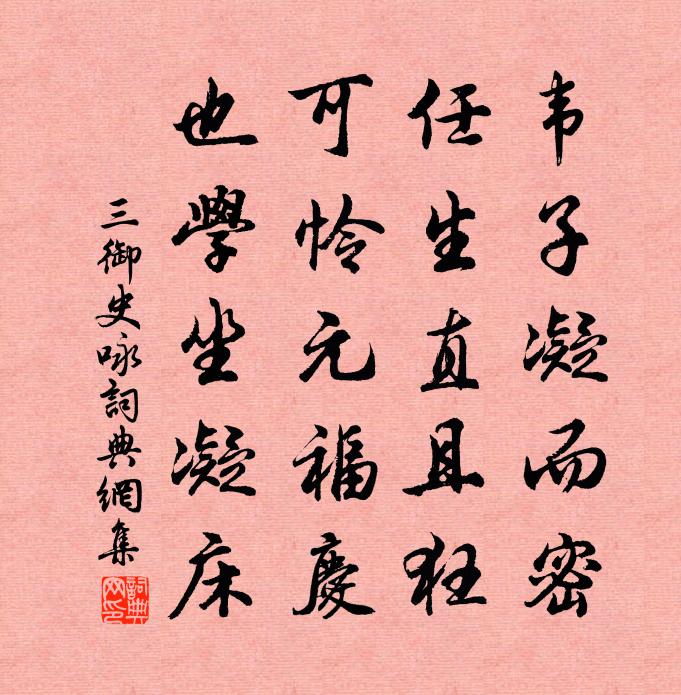 韦子凝而密
任生直且狂
可怜元福慶
也學坐凝床
三御史咏詞典網集
詞典網印